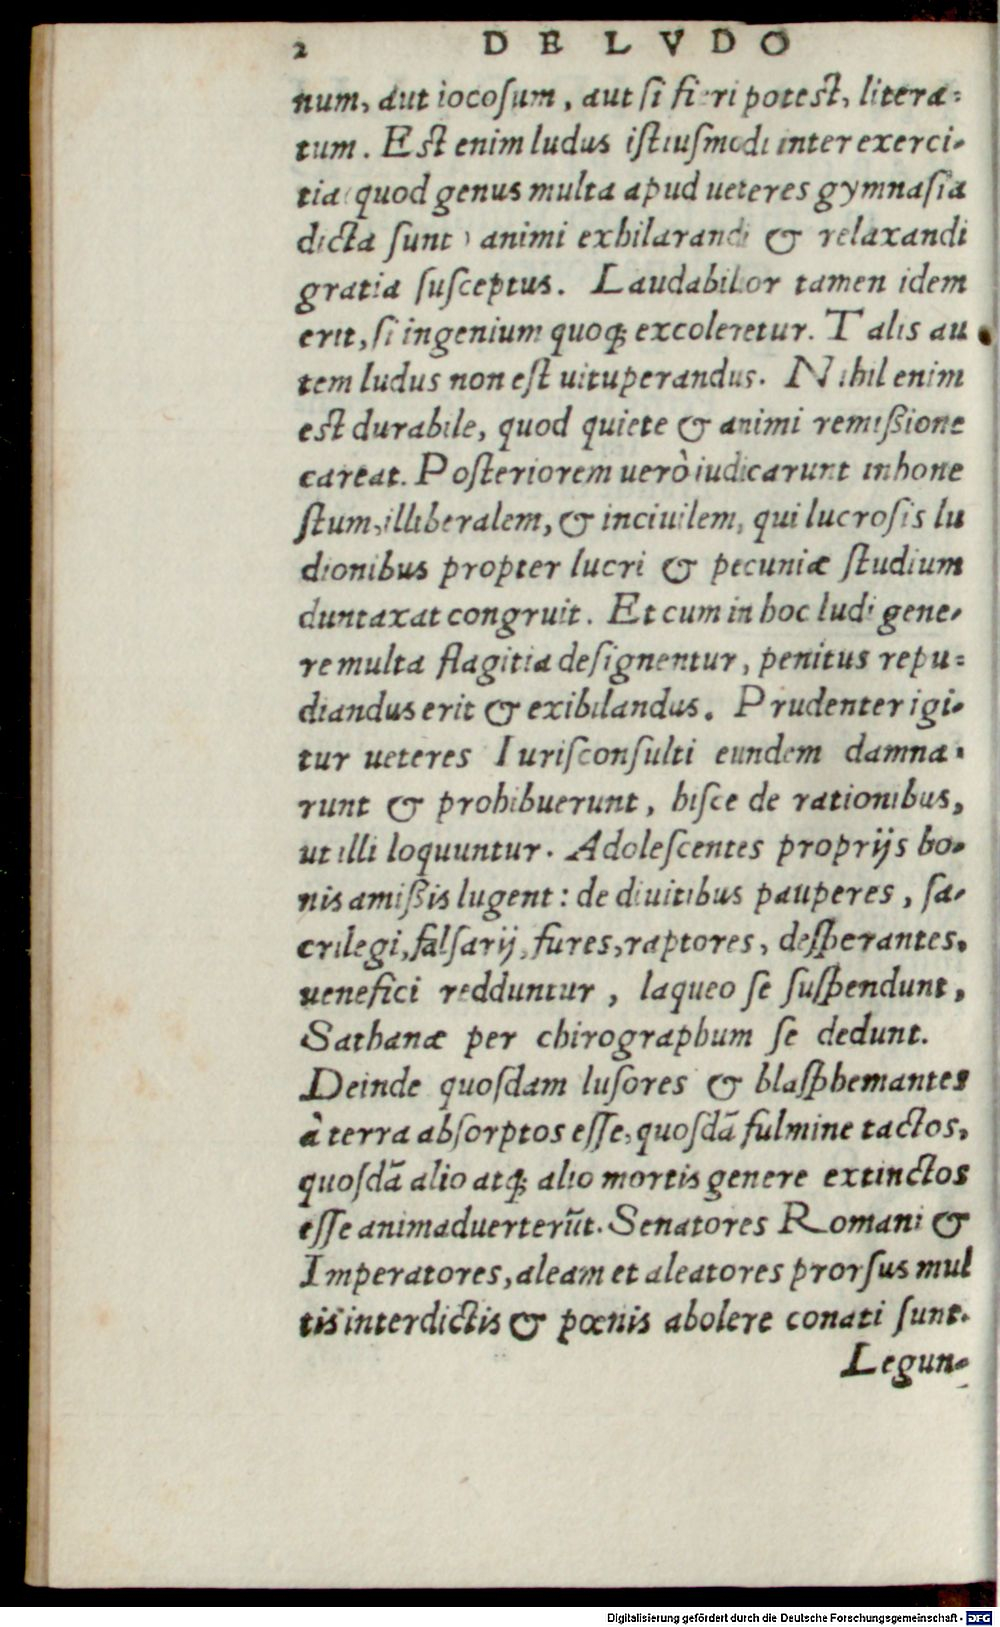 2 DE LVDO
num, aut iocoſum, aut ſi fieri poteſt, litera-
tum. Eſt enim ludus iſtiuſmodi inter exerci-
tia (quod genus multa apud ueteres gymnaſia
dicta ſunt) animi exhilarandi & relaxandi
gratia ſuſceptus. Laudabilior tamen idem
erit, ſi ingenium quoq; excoleretur. Talis au
tem ludus non eſt uituperandus. Nihil enim
eſt durabile, quod quiete & animi remißione
careat. Poſteriorem uerò iudicarunt inhone
ſtum, illiberalem, & inciuilem, qui lucroſis lu
dionibus propter lucri & pecuniæ ſtudium
duntaxat congruit. Et cum in hoc ludi gene-
re multa flagitia deſignentur, penitus repu-
diandus erit & exibilandus. Prudenter igi-
tur ueteres Iuriſconſulti eundem damna-
runt & prohibuerunt, hiſce de rationibus,
ut illi loquuntur. Adoleſcentes proprijs bo-
nis amißis lugent: de diuitibus pauperes, ſa-
crilegi, falſarij, fures, raptores, deſperantes,
uenefici redduntur, laqueo ſe ſuſpendunt,
Sathanæ per chirographum ſe dedunt.
Deinde quoſdam luſores & blaſphemantes
à terra abſorptos eſſe, quoſdã fulmine tactos,
quoſdã alio atq; alio mortis genere extinctos
eſſe animaduerterũt. Senatores Romani &
Imperatores, aleam et aleatores prorſus mul
tis interdictis & pœnis abolere conati ſunt.
Legun-
Digitalisierung gefördert durch die Deutsche Forschungsgemeinschaft - DFG